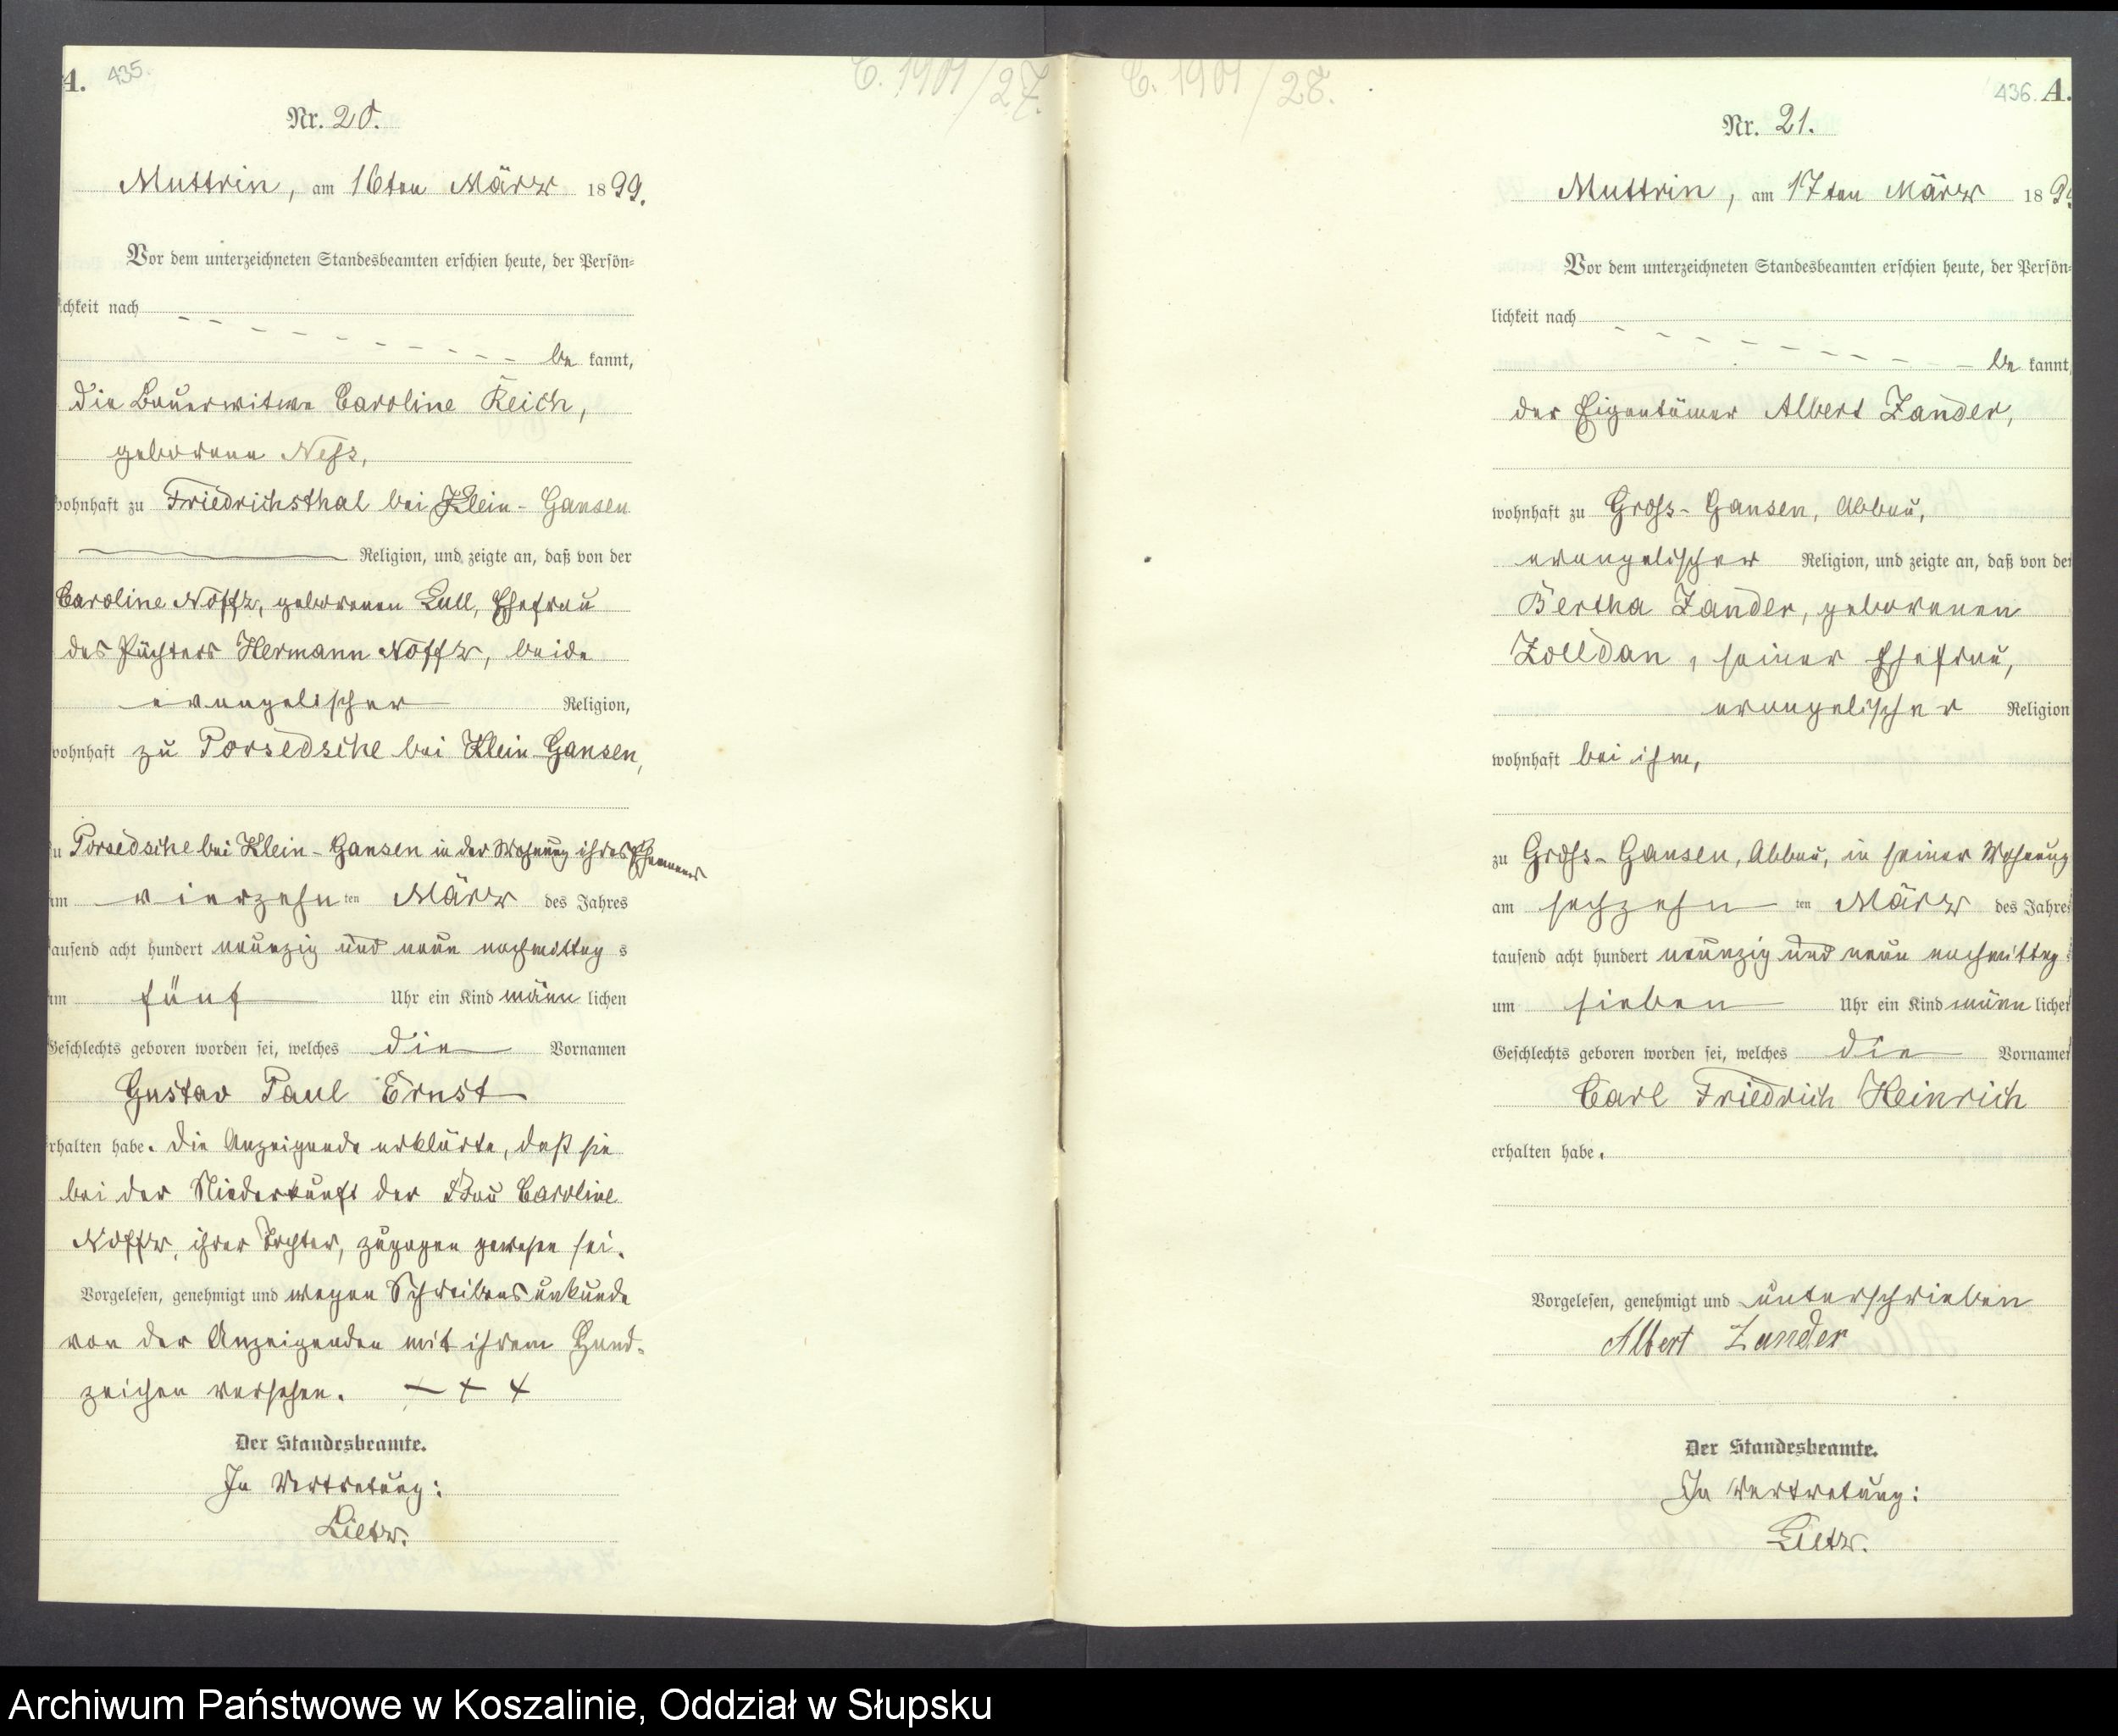 A. 435.
C. 1901/27.
Nr. 20.
Muttrin, am 16ten März 1899.
Vor dem unterzeichneten Standesbeamten erschien heute, der Persön=
lichkeit nach
be kannt,
die Bauerwitwe Caroline Reich,
geborene Ness,
wohnhaft zu Friedrichsthal bei Klein-Gansen
Religion, und zeigte an, daß von der
Caroline Noffz, geborenen Lull, Ehefrau
des Pächters Hermann Noffz, beide
evangelischer Religion,
wohnhaft zu Porsedsche bei Klein Gansen,
zu Porsedsche bei Klein-Gansen in der Wohnung ihres Ehemannes
am vierzehn ten März des Jahres
tausend acht hundert neunzig und neun nachmittag s
um fünf Uhr ein Kind männ lichen
Geschlechts geboren worden sei, welches die Vornamen
Gustav Paul Ernst
erhalten habe. Die Anzeigende erklärte, daß sie
bei der Niederkunft der Frau Caroline
Noffz, ihrer Tochter, zugegen gewesen sei.
Vorgelesen, genehmigt und wegen Schreibensunkunde
von der Anzeigenden mit ihrem Hand-
zeichen versehen. + + +
Der Standesbeamte.
In Vertretung:
Lietz.
C. 1901/28.
436. A.
Nr. 21.
Muttrin, am 17ten März 1899
Vor dem unterzeichneten Standesbeamten erschien heute, der Persön=
lichkeit nach
be kannt,
der Eigentümer Albert Zander,
wohnhaft zu Gross-Gansen, Abbau,
evangelischer Religion, und zeigte an, daß von der
Bertha Zander, geborenen
Zolldan, seiner Ehefrau,
evangelischer Religion
wohnhaft bei ihm,
zu Gross-Gansen, Abbau, in seiner Wohnung
am sechzehn ten März des Jahres
tausend acht hundert neunzig und neun nachmittag s
um sieben Uhr ein Kind männ lichen
Geschlechts geboren worden sei, welches die Vornamen
Carl Friedrich Heinrich
erhalten habe.
Vorgelesen, genehmigt und unterschrieben
Albert Zander
Der Standesbeamte.
In Vertretung:
Lietz.
Archiwum Państwowe w Koszalinie, Oddział w Słupsku